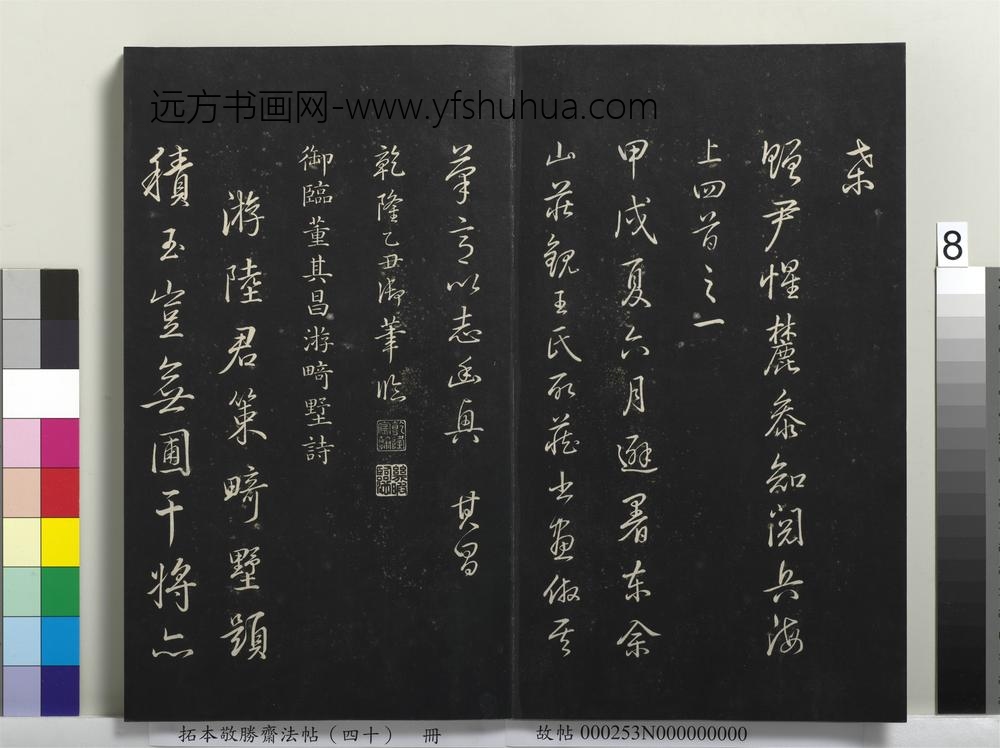 远方书画网-www.yfshuhua.com
柰
贈尹惺麓參知閱兵海
上四首之一
甲戌夏六月避暑東佘
山莊觀王氏所藏書畫倣其
筆意以志幽興 其昌
乾隆乙丑御筆臨
御臨董其昌游畸墅詩
游陸君策畸墅題
積玉豈無圃干將亦
8
拓本敬勝齋法帖（四十） 冊
故帖 000253N000000000